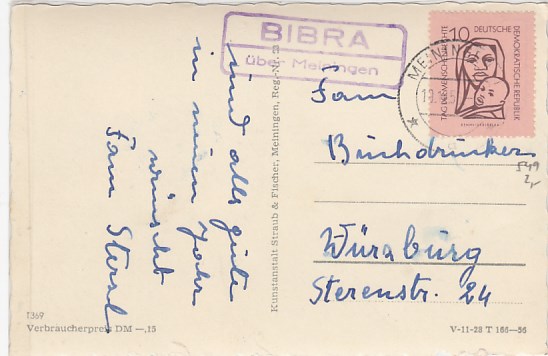 BIBRA
über Meiningen
10
DEUTSCHE
DEMOKRATISCHE REPUBLIK
TAG DER MENSCHENRECHTE
MEININ
und alls gute
in neuen Jahr
wünscht
Fam
Kunstanstalt Straub & Fischer, Meiningen, Reg.-Nr.
Fam
Buchdrucker
Würzburg
Sterenstr. 24
549
1369
Verbraucherpreis DM —,15
V-11-28 T 166—56